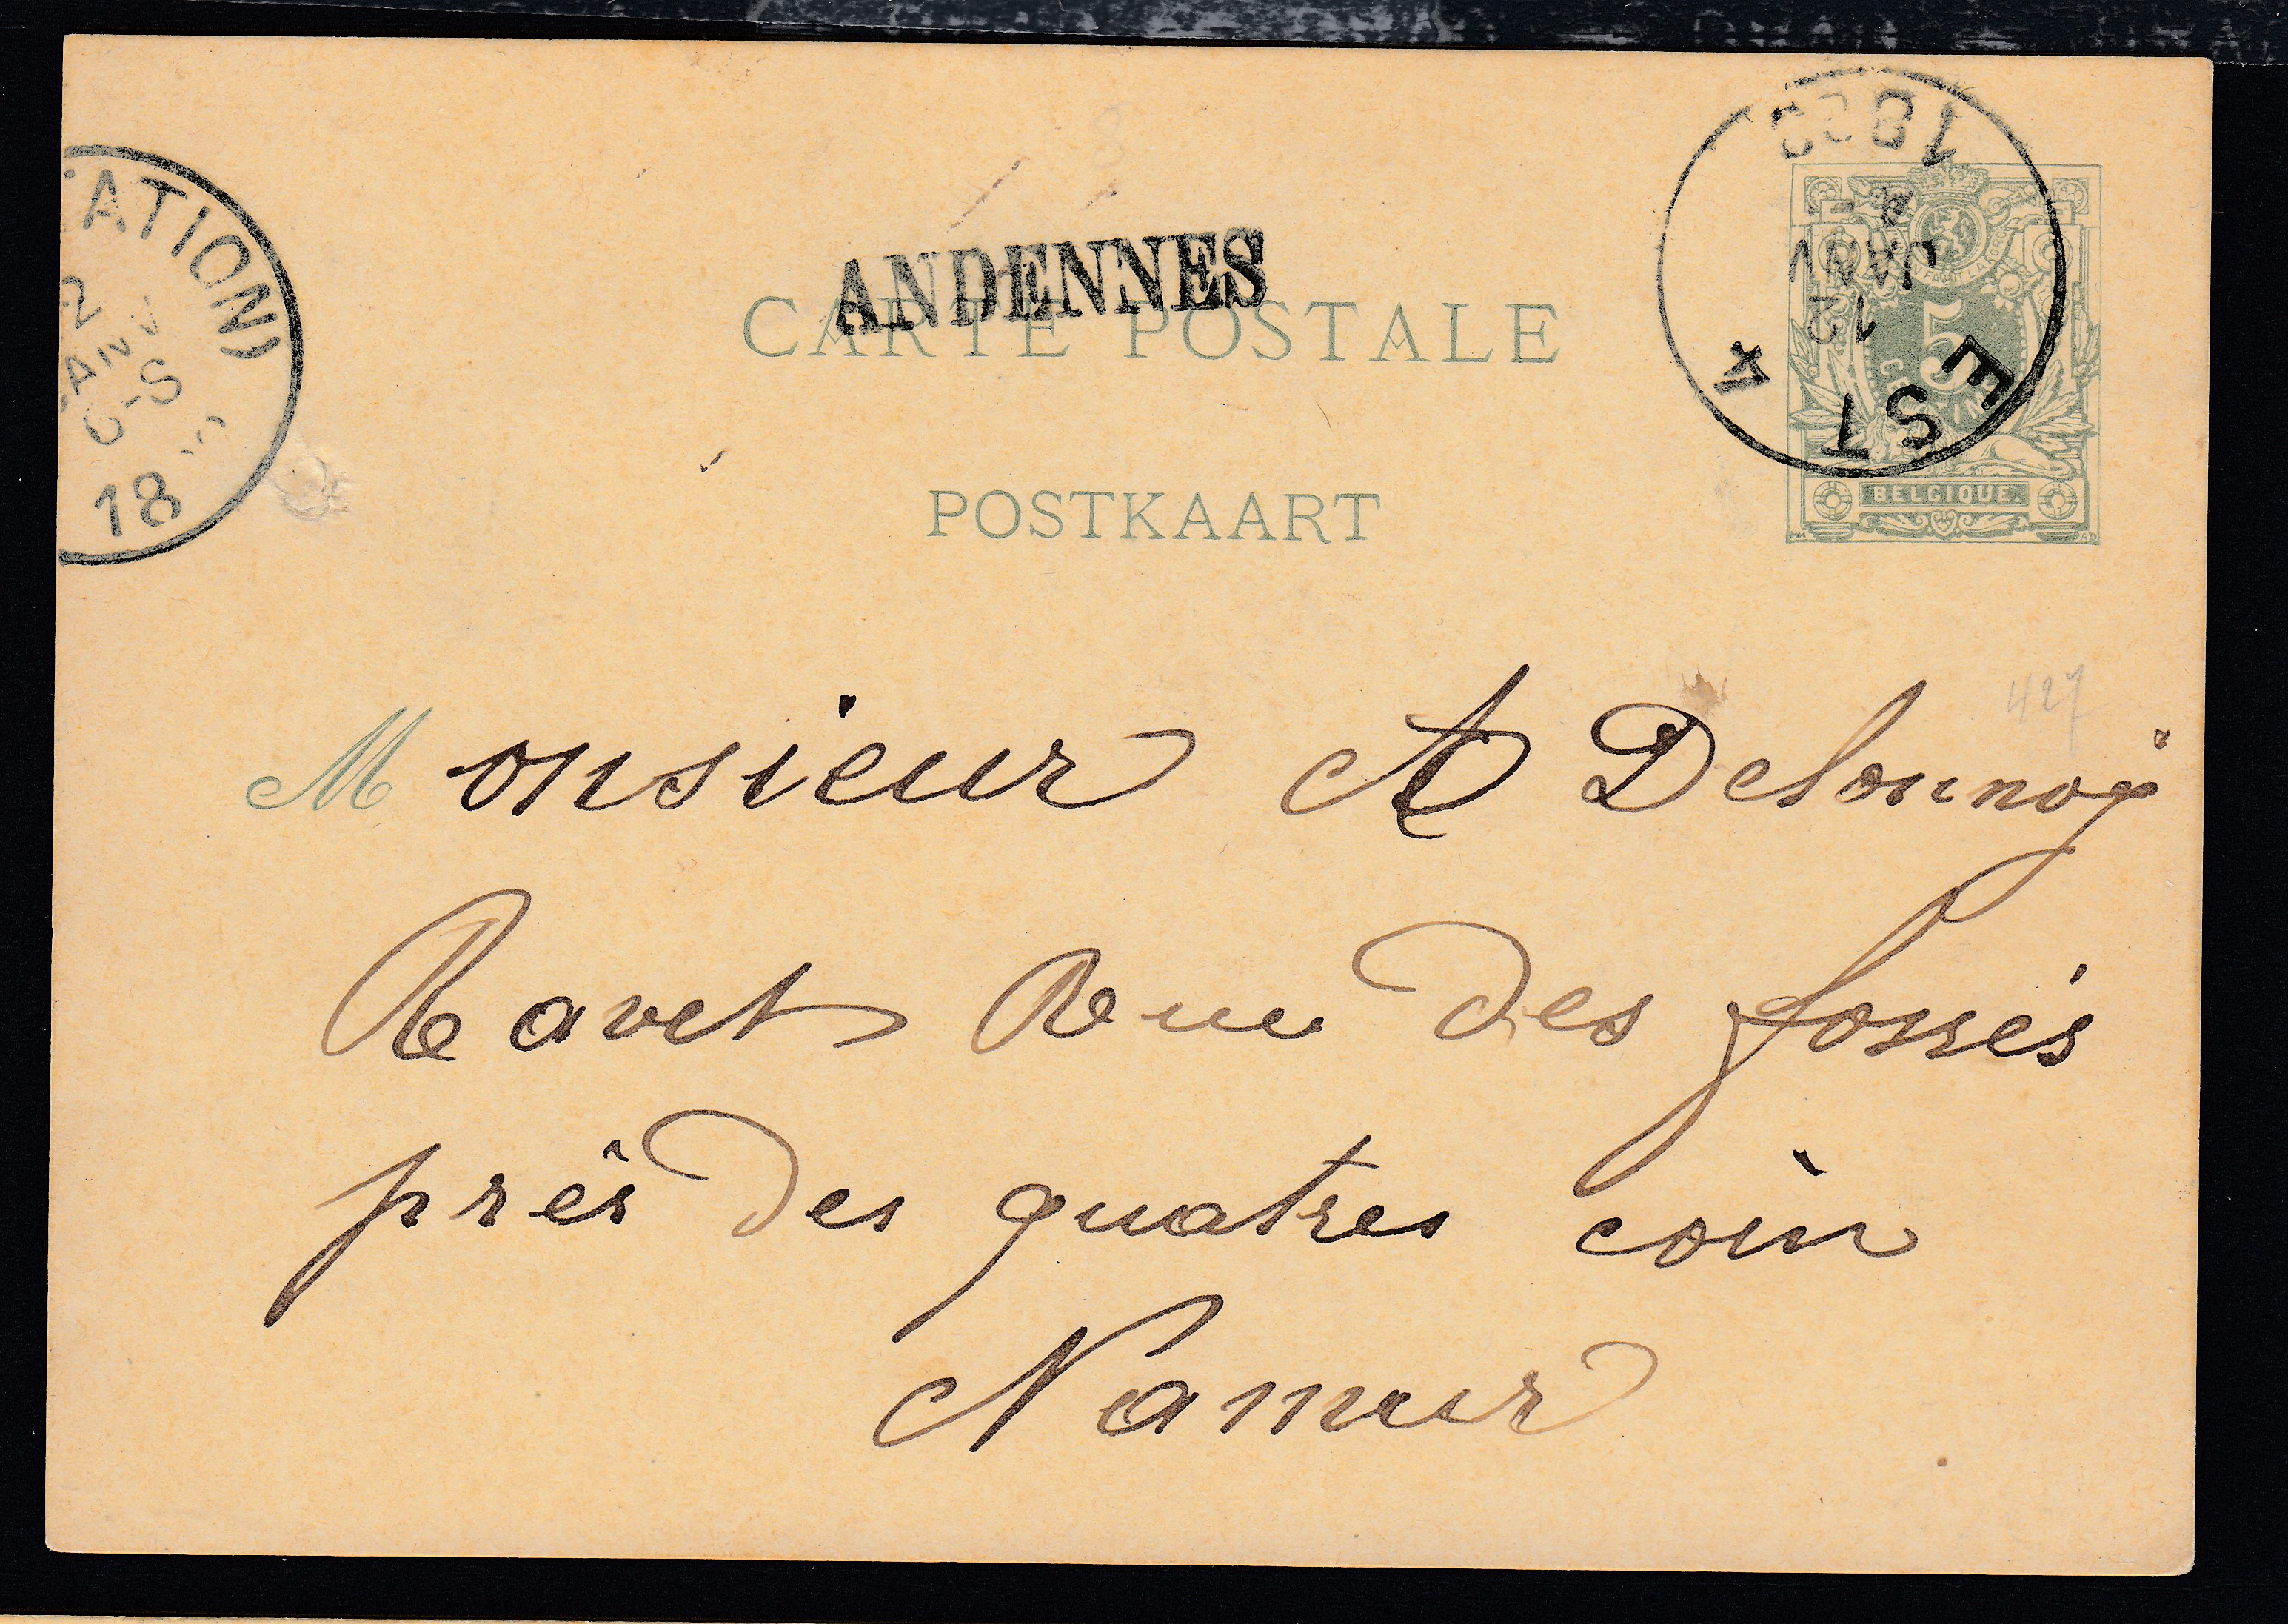 ANDENNES
CARTE POSTALE
POSTKAART
EST 4
12
JANV
4 -
18
5
BELGIQUE
ATION)
2
6-S
18
427
Monsieur A Delounoÿ
Ravet Rue des fossés
près des quatres coin
Namur